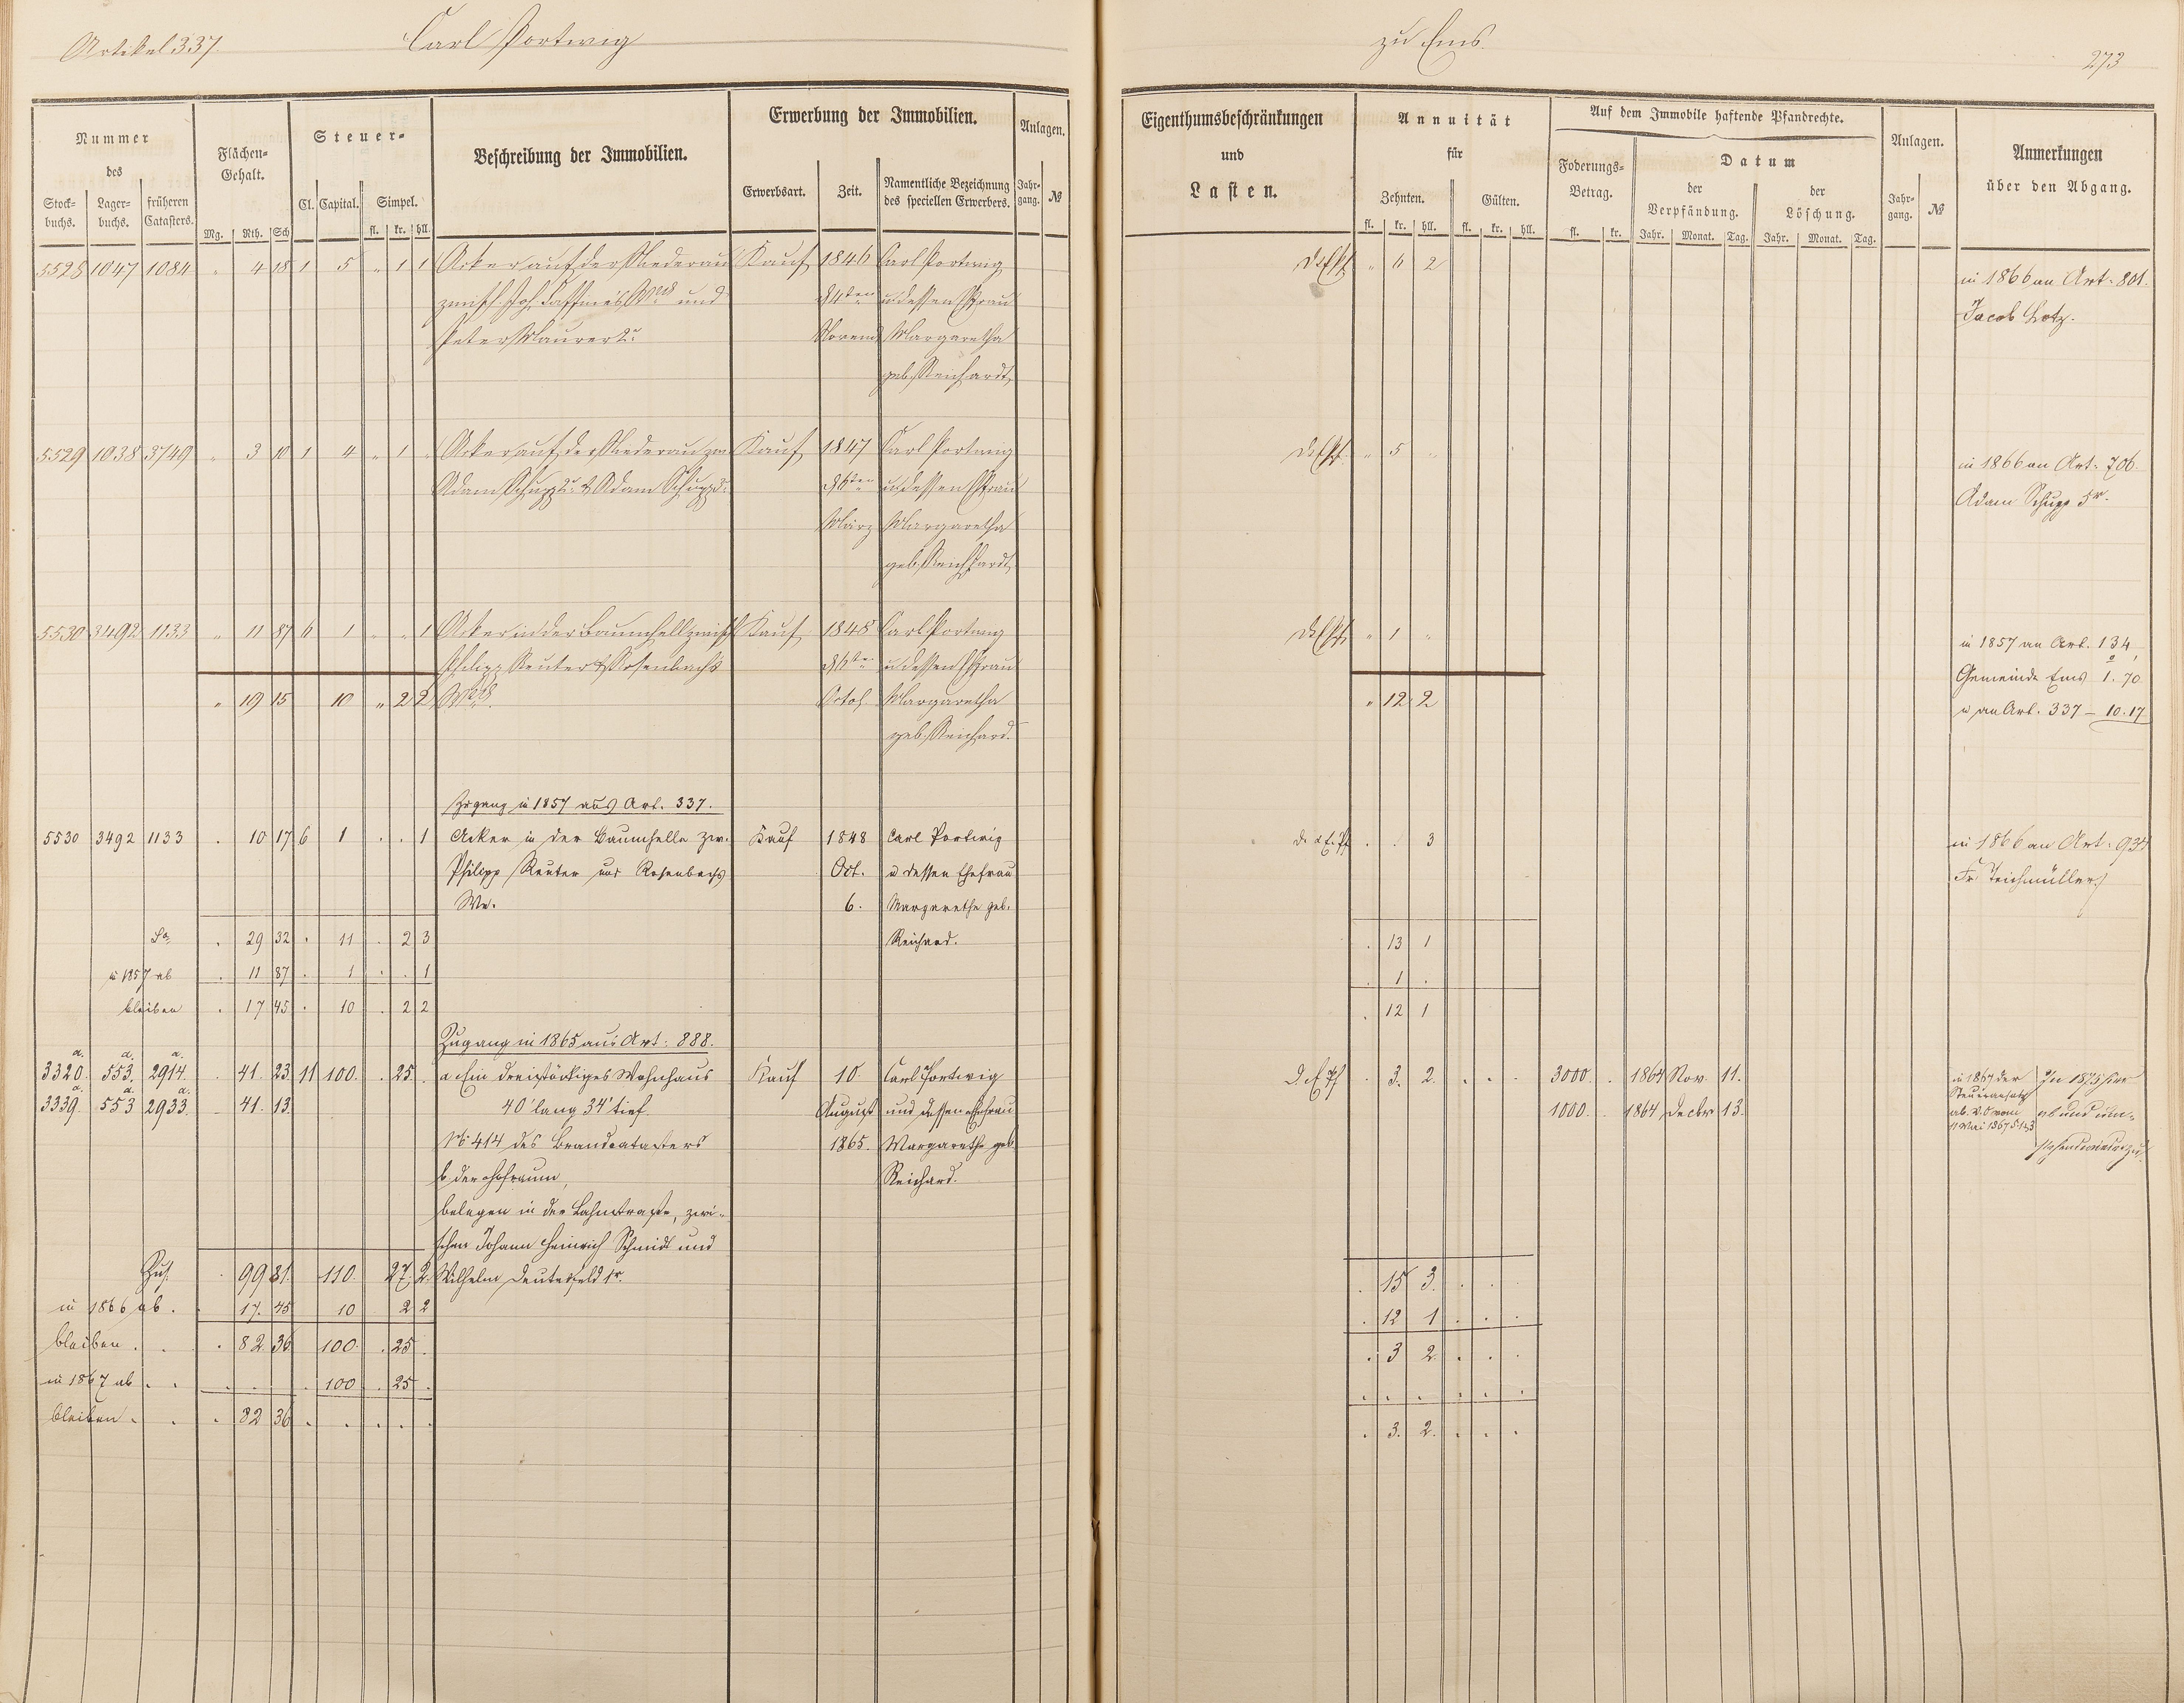 Artikel 337.
Carl Portwig
zu Ems.
273
Nummer
des
Stock-
buchs.
Lager-
buchs.
früheren
Catasters.
Flächen-
Gehalt.
Mg. Rth. Sch
Steuer-
Cl. Capital. Simpel.
fl. kr. hll.
Beschreibung der Immobilien.
Erwerbung der Immobilien.
Erwerbsart. Zeit.
Namentliche Bezeichnung
des speciellen Erwerbers.
Anlagen.
Jahr-
gang. №
Eigenthumsbeschränkungen
und
Lasten.
Annuität
für
Zehnten. Gülten.
fl. kr. hll. fl. kr. hll.
Auf dem Immobile haftende Pfandrechte.
Foderungs-
Betrag.
fl. kr.
Datum
der
Verpfändung.
Jahr. Monat. Tag.
der
Löschung.
Jahr. Monat. Tag.
Anlagen.
Jahr-
gang. №
Anmerkungen
über den Abgang.
5528 1047 1084 " 4 18 1 5 " 1 1 Acker auf der Niederau Kauf 1846 Carl Portwig " 6 2 in 1866 an Art. 801.
und d 4ten u. dessen Efrau Jacob Lotz.
Peter Maurer Novemb Margaretha
geb. Reichardt
5529 1038 3749 " 3 10 1 4 " 1 " Acker auf der Niederau zw Kauf 1847 Carl Portwig " 5 " in 1866 an Art. 706.
Adam Schupp & Adam Schupp d 6ten u. dessen Efrau Adam Schupp 5r.
März Margaretha
geb. Reichhardt
5530 3492 1133 " 11 87 6 1 " " 1 Acker in der Baumhell zwisch Kauf 1848 Carl Portwig " 1 " in 1857 an Art. 134,
Philipp Reuter & Rosenbachs d 6ten u. dessen Efrau Gemeinde Ems 1. 70
" 19 15 10 " 2 2 Wwe. Octob Margaretha " 12 2 u an Art. 337 — 10.17
geb. Reichard.
Zugang in 1857 aus Art. 337.
5530 3492 1133 . 10 17 6 1 . . 1 Acker in der Baumhelle zw. Kauf 1848 Carl Portwig . . 3 in 1866 an Art. 934
Philipp Reuter und Rosenbachs Oct. u dessen Ehefrau Fr. Teichmüller.
We. 6. Margarethe geb.
Sa. . 29 32 . 11 . 2 3 Reichard. . 13 1
in 1857 ab . 11 87 . 1 . . 1 . 1 .
bleiben . 17 45 . 10 . 2 2 . 12 1
Zugang in 1865 aus Art: 888.
a. a. a.
3320. 553. 2914. . 41. 23 11 100. . 25 . a Ein dreistöckiges Wohnhaus Kauf 10. Carl Portwig . 3. 2. . . . 3000. . 1864 Nov. 11. in 1867 der In 1875 hier
a. a. a.
3339. 553 2933. . 41. 13. 40' lang 34' tief August und dessen Ehefrau 1000. . 1864 Decbr 13. Steueransatz ab und
№ 414 des Brandcatasters 1865. Margarethe geb. ab. V. O vom
b der Hofraum, Reichard. 11 Mai 1867 S. 123
belegen in der Lahnstrasse, zwi-
schen Johann Heinrich Schmidt und
Zus. . 99 81. 110. 27. 2. Wilhelm . 15 3. . .
in 1866 ab . 17. 45 10 2 2 . 12 1 . . .
bleiben . . . 82 36 100. . 25 . . 3 2. . . .
in 1867 ab . . . . . . 100 . 25 . . . . . . .
bleiben . . . 82 36 . . . . . . 3. 2. . . .